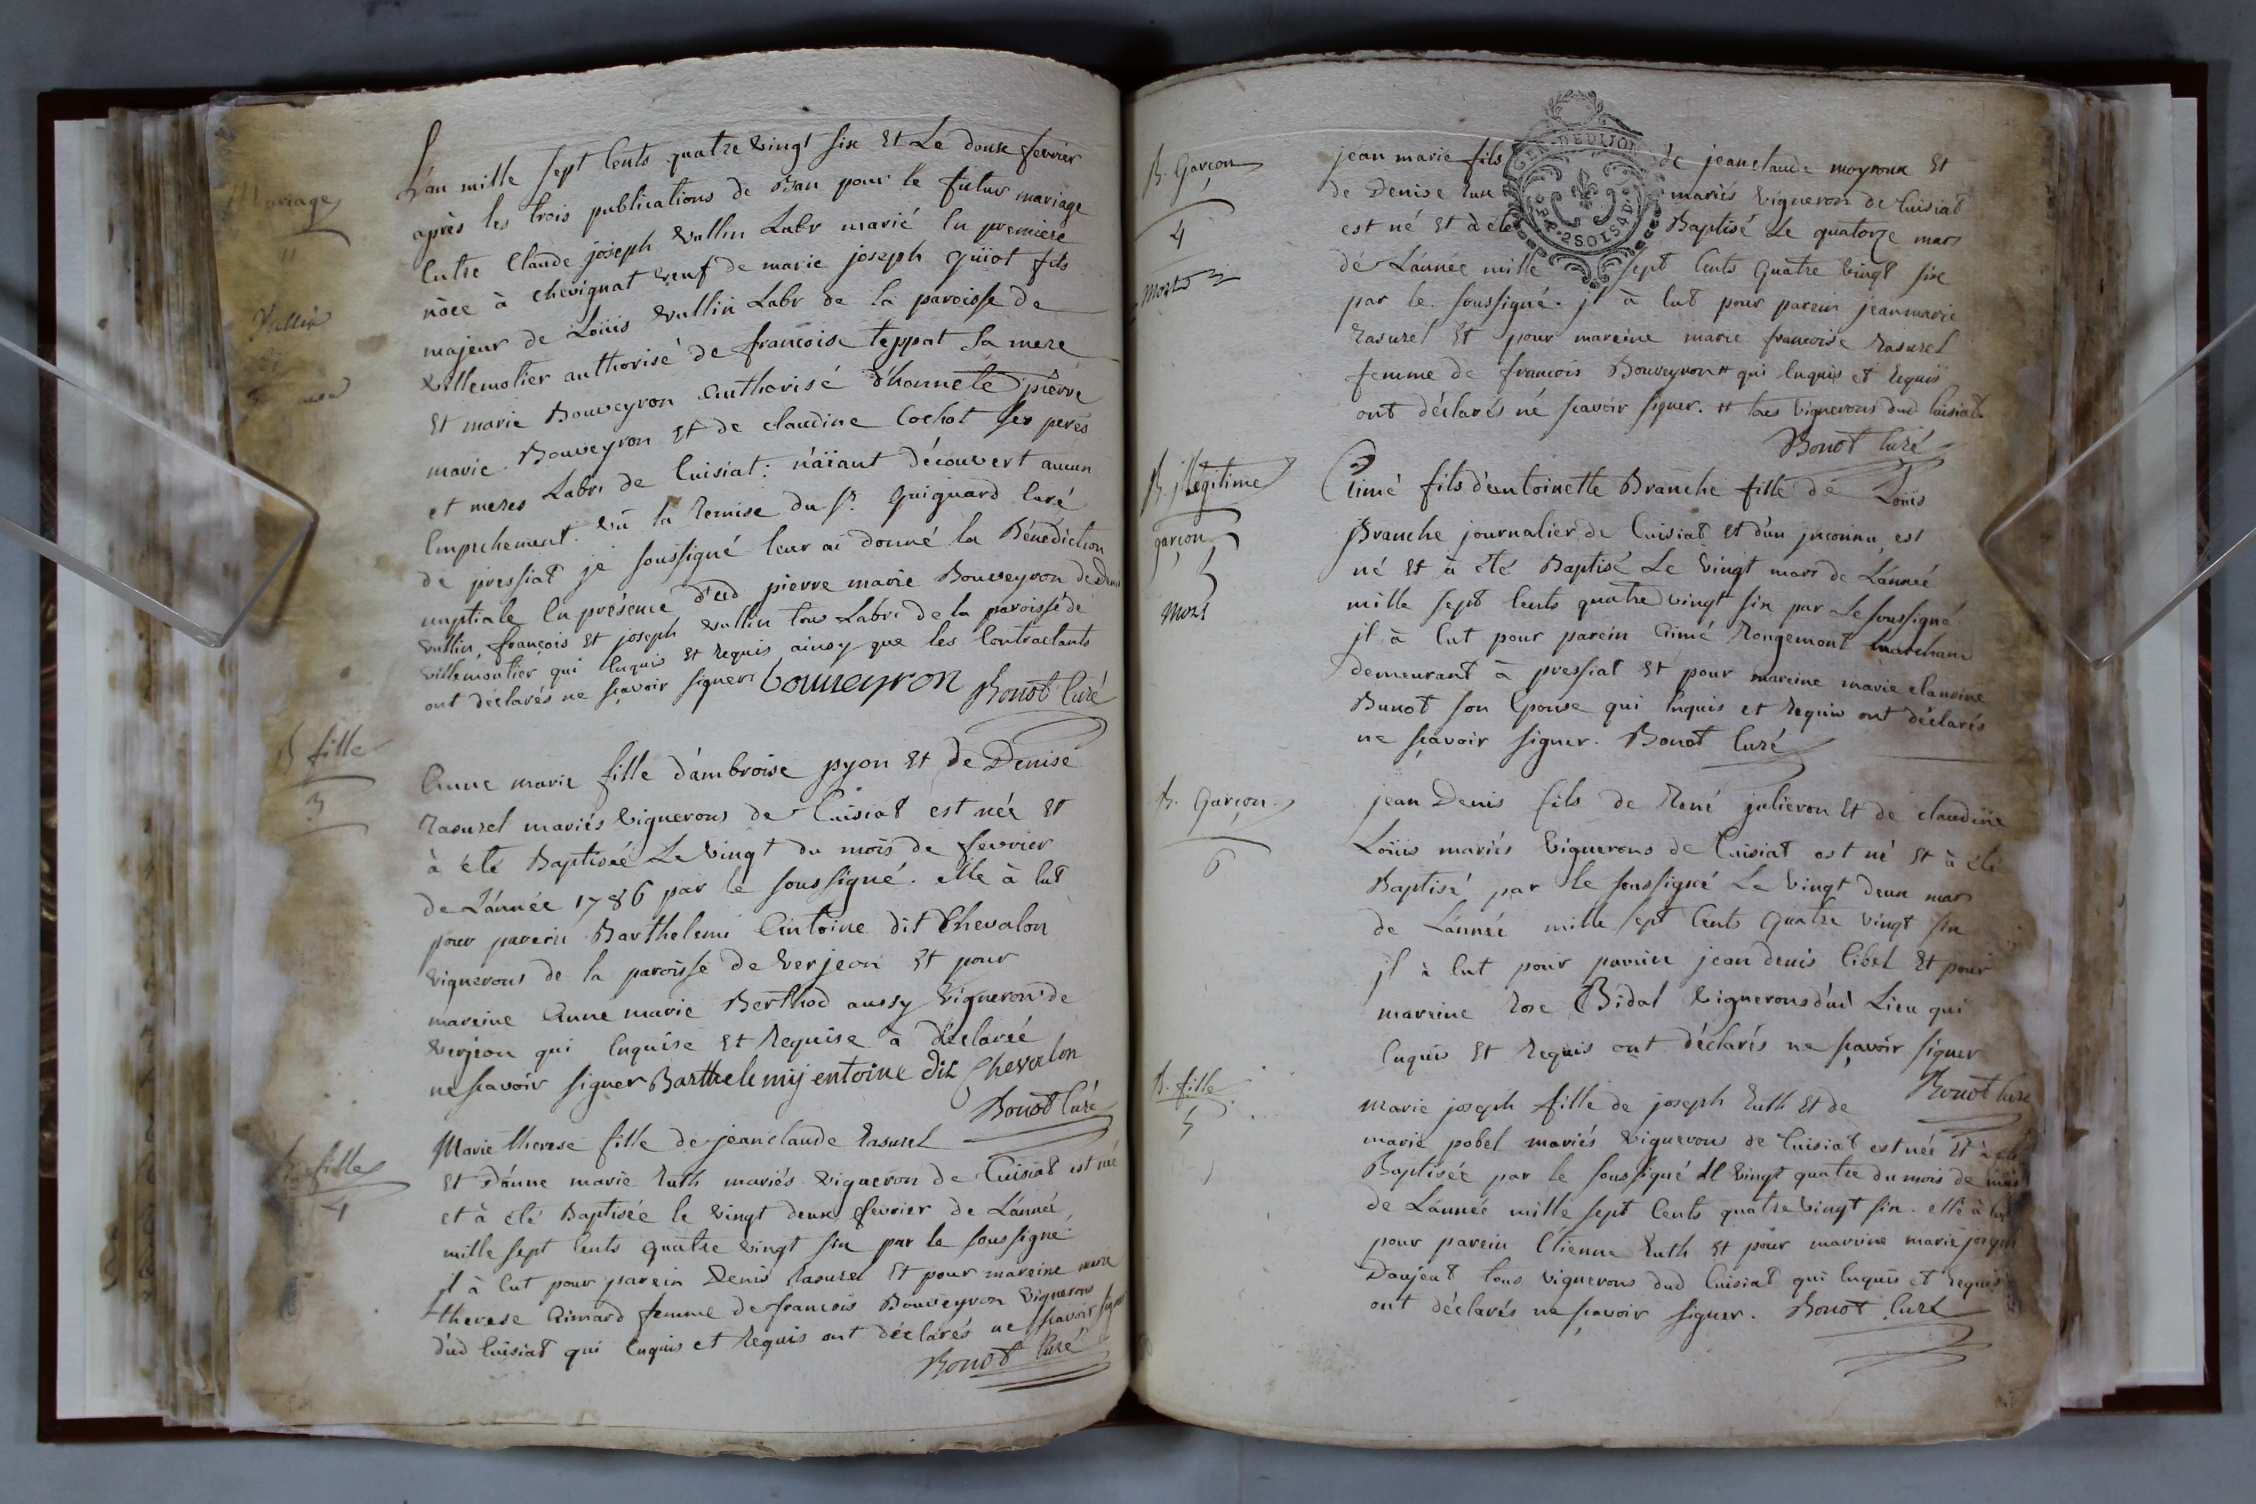 Mariage
11
Vullin
L'an mille sept Cents quatre vingt six Et Le douse fevrier
après les trois publications de Ban pour le futur mariage
Entre Claude joseph Vullin Labr marié En premiere
nôce à chevignat veuf de marie joseph guiot fils
majeur de Loüis Vullin Labr de la paroisse de
Villemotier authorisé de francoise teppat sa mere
Et marie Bouveyron Authorisé d'honnete pierre
marie Bouveyron Et de claudine Cochot ses peres
et meres Labrs de Cuisiat: n'aïant découvert aucun
Empechement. vû la Remise du sr. Guignard Curé
de pressiat je soussigné leur ai donné la Bénédiction
nuptiale En présence d'ud pierre marie Bouveyron de Denis
Vullin, françois Et joseph Vullin tous Labrs de la paroisse de
Villemoutier qui Enquis Et Requis ainsy que les Contractants
ont déclarés ne sçavoir signer. bouveyron Bonot Curé
B fille
3
Anne marie fille d'ambroise pyon Et de Denise
Rasurel mariés vignerons de Cuisiat est née Et
à été Baptisée Le vingt du mois de fevrier
de L'année 1786 par le soussigné. elle à Eut
pour parein Barthelemi Antoine dit Chevalon
vignerons de la paroisse de verjeon Et pour
mareine Anne marie Berthod aussy vigneron de
Verjeon qui Enquise Et Requise a déclarée
ne sçavoir signer Barthelemij entoine dit Chevalon
Bonot Curé
B. fille
4
Marie therese fille de jean claude Rasurel
Et D'anne marie Ruth mariés vigneron de Cuisiat est née
et à été Baptisée le vingt deux fevrier de L'année
mille sept Cents quatre vingt six par le soussigné
il à Eut pour parein Denis Rasurel Et pour mareine marie
therese Aimard femme de francois Bouveyron vignerons
d'ud Cuisiat qui Enquis et Requis ont déclarés ne sçavoir signer
Bonot Curé
B. Garçon
4
mort
jean marie fils de jean claude moyroux Et
de Denise mariés vigneron de Cuisiat
est né Et à été Baptisé Le quatorze mars
de L'année mille sept Cents quatre vingt six
par le soussigné. jl à Eut pour parein jean marie
Rasurel Et pour mareine marie francoise Rasurel
femme de francois Bouveyron # qui Enquis et Requis
ont déclarés né sçavoir signer. # tous vignerons dud Cuisiat
Bonot Curé
GEN. DE DIJON
B. jllegitime
garçon
mort
Aimé fils d'entoinette Branche fille de Loüis
Branche journalier de Cuisiat et d'un jnconnu, est
né Et à été Baptisé Le vingt mars de L'année
mille sept Cents quatre vingt six par Le soussigné
jl à Eut pour parein Aimé Rongemont marchand
demeurant à pressiat Et pour mareine marie claudine
Bunot son Epouse qui Enquis et Requis ont déclarés
ne sçavoir signer. Bonot Curé
B. Garçon
6
jean Denis fils de René julieron Et de claudine
Loüis mariés vignerons de Cuisiat est né Et à été
Baptisé par le soussigné Le vingt deux mars
de L'année mille sept Cents quatre vingt six
jl à Eut pour parein jean denis Cibel Et pour
mareine Rose Bidal vignerons d'ud Lieu qui
Enquis Et Requis ont déclarés ne sçavoir signer
Bonot Curé
B. fille
5
marie joseph fille de joseph Ruth Et de
marie pobel mariés vignerons de Cuisiat est née Et à été
Baptisée par le soussigné le vingt quatre du mois de mars
de L'année mille sept Cents quatre vingt six. elle à Eut
pour parein Etienne Ruth Et pour mareine marie joseph
Danjeut tous vignerons dud Cuisiat qui Enquis et Requis
ont déclarés ne sçavoir signer. Bonot Curé